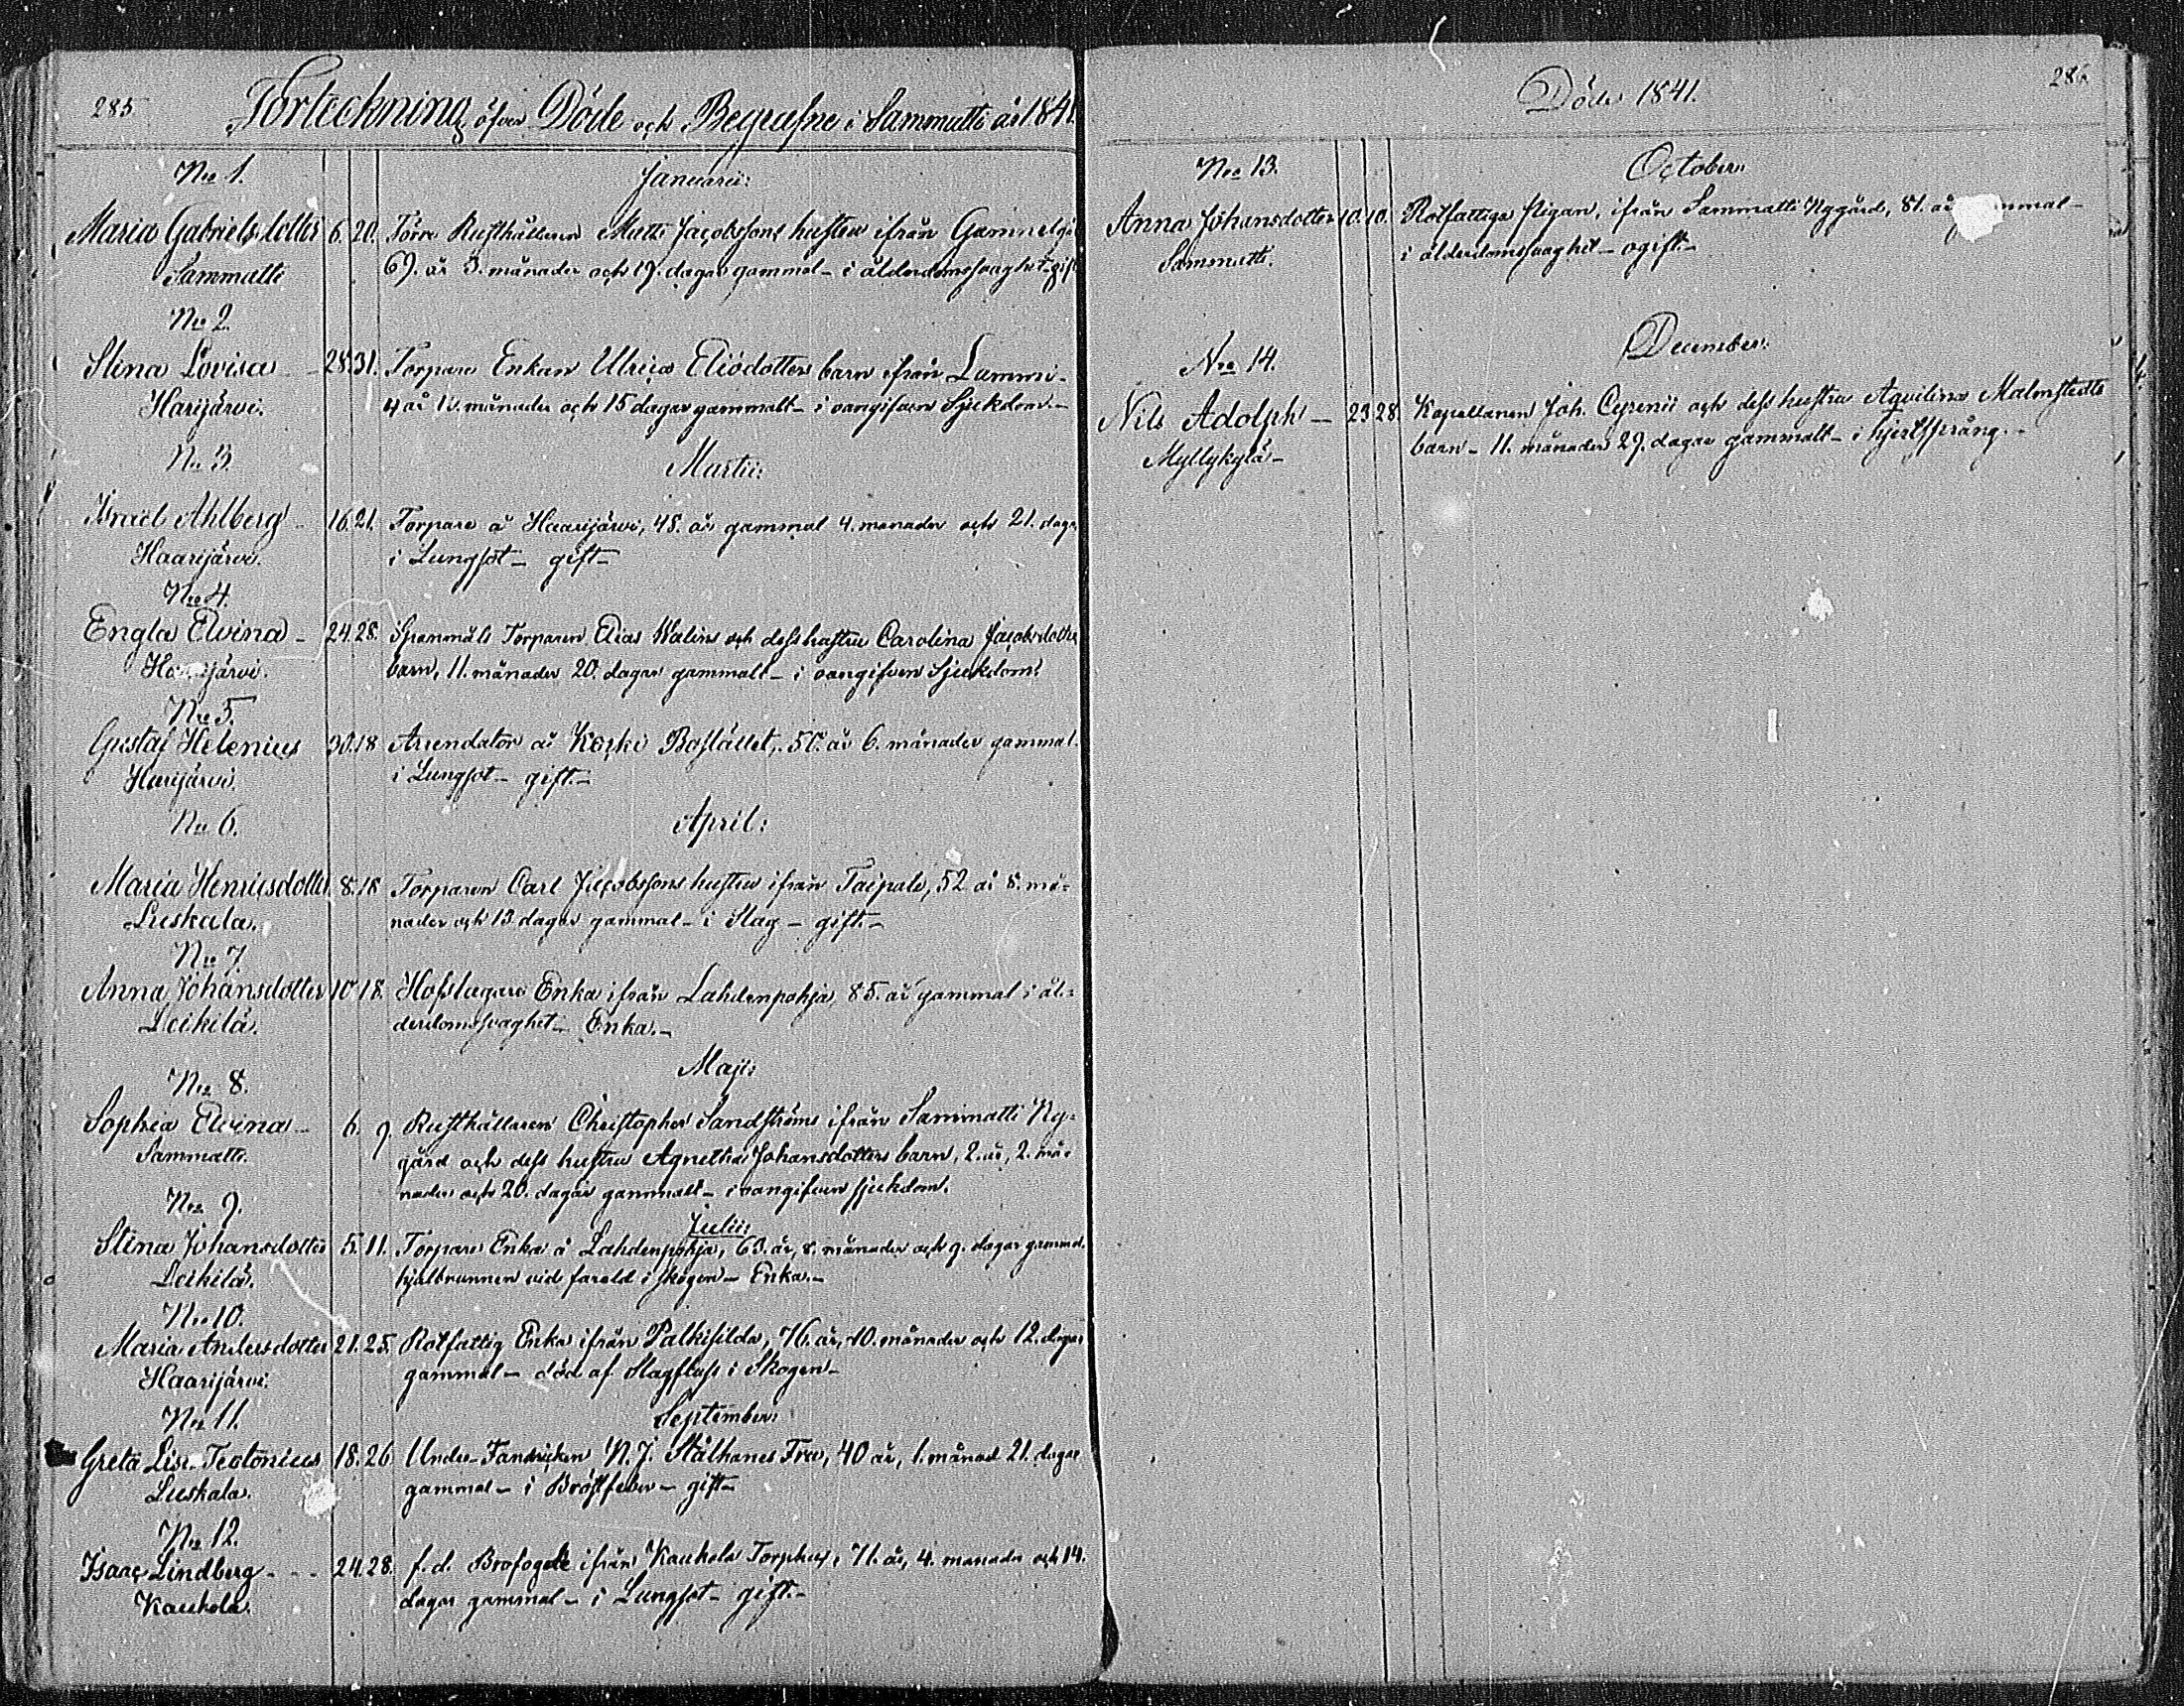 285
Förteckning öfver Döde och Begrafne i Sammatti år 1841
No 1.
Januarii:
Maria Gabrielsdotter 6. 20. Förre Rusthållaren Matts Jacobssons hustru ifrån Gammelgå
Sammatti 69. år 3. månader och 19. dagar gammal – i ålderdomssvaghet – gift
No 2.
Stina Lovisa – 28. 31. Torpare Enkan Ulrica Eliædotters barn ifrån Lummi-
Harijärvi. 4 år 10. månader och 15 dagar gammalt – i oangifven Sjukdom. –
No 3.
Martii:
Israël Ahlberg – 16. 21. Torpare å Haarijärvi, 48. år gammal 4. månader och 21. daga
Haarijärvi. i Lungsot – gift –
No 4.
Engla Elvina – 24. 28. Torparen Elias Walins och dess hustru Carolina Jacobsdotters
Haarijärvi. barn, 11. månader 20. dagar gammalt – i oangifven Sjukdom.
No 5.
Gustaf Helenius 30. 18 Arrendator å Koski Bostället, 50. år 6. månader gammal.
Harijärvi. i Lungsot – gift. –
No 6.
April:
Maria Henricsdotter 8. 18 Torparen Carl Jacobssons hustru ifrån Taipale, 52 år 8. må-
Luskala. nader och 13 dagar gammal – i Slag – gift. –
No 7.
Anna Johansdotter 10 18. Hofslagare Enka ifrån Lahdenpohja 85. år gammal i ål-
Leikilä. derdomssvaghet – Enka. –
Maji:
No 8.
Sophia Elvina – 6. 9. Rusthållaren Christopher Sandströms ifrån Sammatti Ny-
Sammatti. gård och dess hustru Agnetha Johansdotters barn, 2. år, 2. må-
nader och 20. dagar gammalt – i oangifven sjukdom.
No 9.
Julii:
Stina Johansdotter 5. 11. Torpare Enka å Lahdenpohja, 63. år, 8. månader och 9. dagar gammal.
Leikilä. vid i skogen – Enka. –
No 10.
Maria Andersdotter 21. 25. Rotfattig Enka ifrån Palkisilda, 76. år, 10. månader och 12. dagar
Haarijärvi. gammal – död af Slagfluss i Skogen –
No 11.
September:
Greta Lisa Teotonius 18. 26 Under-Fandricken N. J. Stålhanes Fru, 40 år, 1. månad 21. dagar
Luskala. gammal – i Bröstfeber – gift –
No 12.
Isaac Lindberg – – – 24. 28. f. d. Brofogde ifrån Kaukola Torphus, 71. år, 4. månader och 14.
Kaukola. dagar gammal – i Lungsot – gift. –
Döde 1841.
286
No 13.
October:
Anna Johansdotter 10. 10. Rotfattiga Pigan, ifrån Sammatti Nygård, 81. år mmal –
Sammatti. i ålderdomssvaghet – ogift –
December:
No 14.
Nils Adolph – 23 28. Kapellanen Joh. Cyrenii och dess hustru Aqvilina Malmstedts
Myllykylä – barn – 11. månader 29. dagar gammalt – i hjertsprång. –